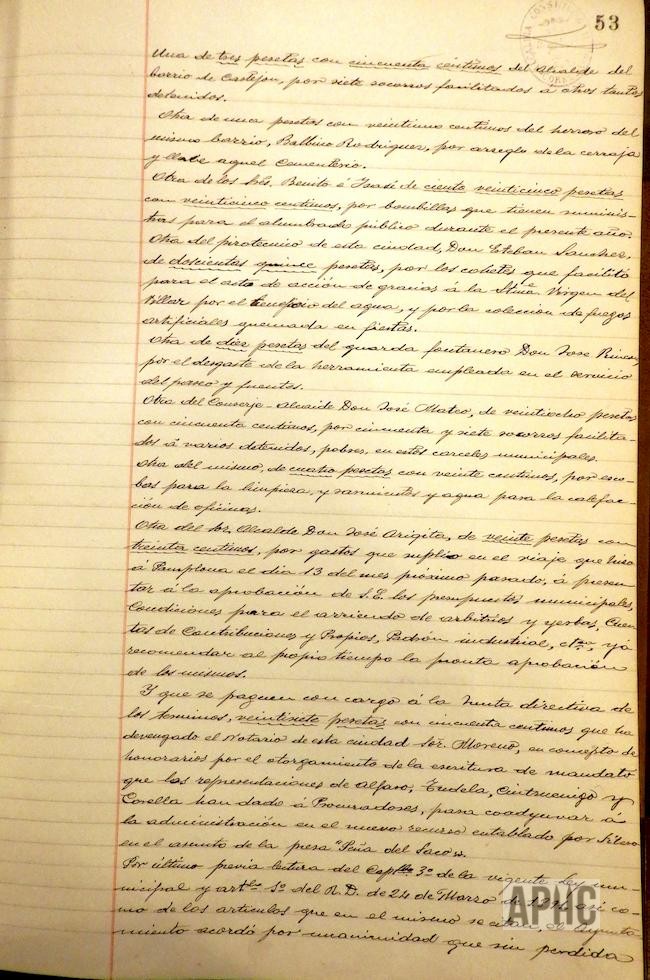 53
Una de tres pesetas con cincuenta céntimos del alcalde del
barrio de Castejon, por siete socorros facilitados á otros tantos
detenidos.
Otra de una pesetas con veintiuno centimos del herrero del
mismo barrio, Balbino Rodriguez, por arreglo de la cerraja
y llave aquel Cementerio.
Otra de los Sres. Benito é Isasi de ciento veinticinco pesetas
con veinticinco centimos, por bombillas que tienen suminis-
tras para el alumbrado público durante el presente año.
Otra del pirotecnico de esta ciudad, Don Esteban Sanchez,
de doscientas quince pesetas, por los cohetes que facilitó
para el acto de acción de gracias á la Stma. Virgen del
Pillar por el beneficio del agua, y por la coleccion de fuegos
artificiales quemada en fiestas.
Otra de diez pesetas del guarda fontanero Don Jose Rincon,
por el desgaste de la herramienta empleada en el servicio
del paseo y fuentes.
Otra del Conserje-Alcaide Don José Mateo, de veintiocho pesetas
con cincuenta centimos, por cincuenta y siete socorros facilita-
dos á varios detenidos, pobres, en estas carceles municipales.
Otra del mismo, de cuatro pesetas con veinte centimos, por esco-
bas para la limpieza, y sarmientos y agua para la calefac-
ción de oficinas.
Otra del Sr. Alcalde Don José Arigita, de veinte pesetas con
treinta centimos, por gastos que suplio en el viaje que hizo
á Pamplona el dia 13 del mes próximo pasado, á presen-
tar á la aprobación de S.E. los presupuestos municipales,
Condiciones para el arriendo de arbitrios y yerbas, Cuen-
tas de Contribuciones y Propios, Padrón industrial, etca., y á
recomendar al propio tiempo la pronta aprobación
de los mismos.
Y que se paguen con cargo á la Junta directiva de
los terminos, veintisiete pesetas con cincuenta centimos que ha
devengado el Notario de esta ciudad Sor. Moreno, en concepto de
honorarios por el otorgamiento de la escritura de mandato
que las representaciones de Alfaro, Tudela, Cintruenigo y
Corella han dado á Procuradores, para coadyuvar á
la administración en el nuevo recurso entablado por Fitero
en el asunto de la presa "Peña del Saco".
Por último previa lectura del Cap. 3º de la vigente Ley mu-
nicipal y art. 5º del R.D. de 24 de Marzo de así co-
mo de los articulos que en el mismo se citan, el Ayunta-
miento acordó por unanimidad que sin perdida
APHC